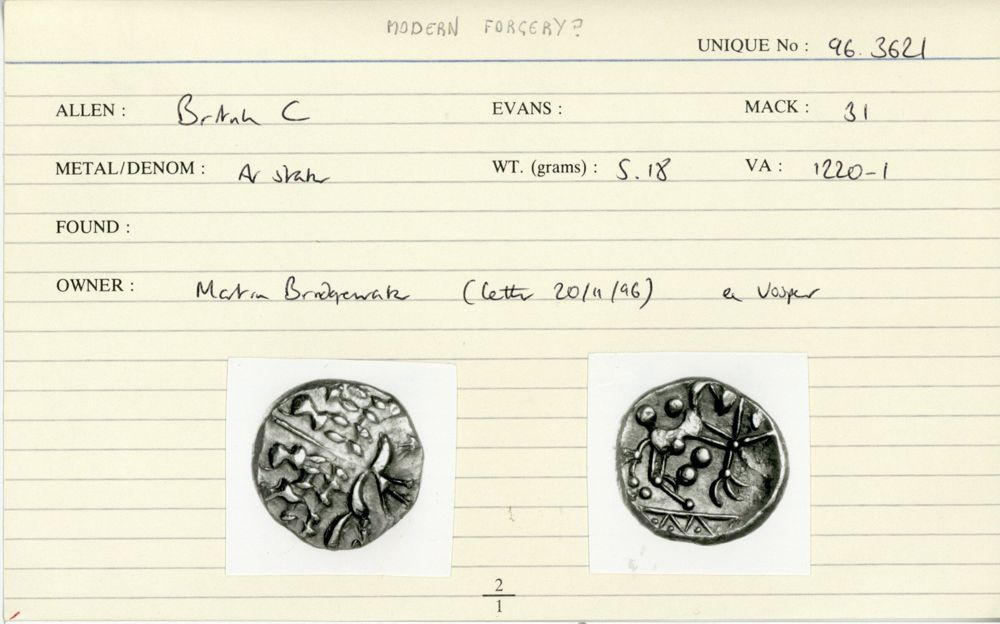 MODERN FORGERY?
UNIQUE No : 96.3621
ALLEN : British C EVANS : MACK : 31
METAL/DENOM : Ar stater WT. (grams) : 5.18 VA : 1220-1
FOUND :
OWNER : Martin Bridgewater (letter 20/11/96) ex Vosper
2
1